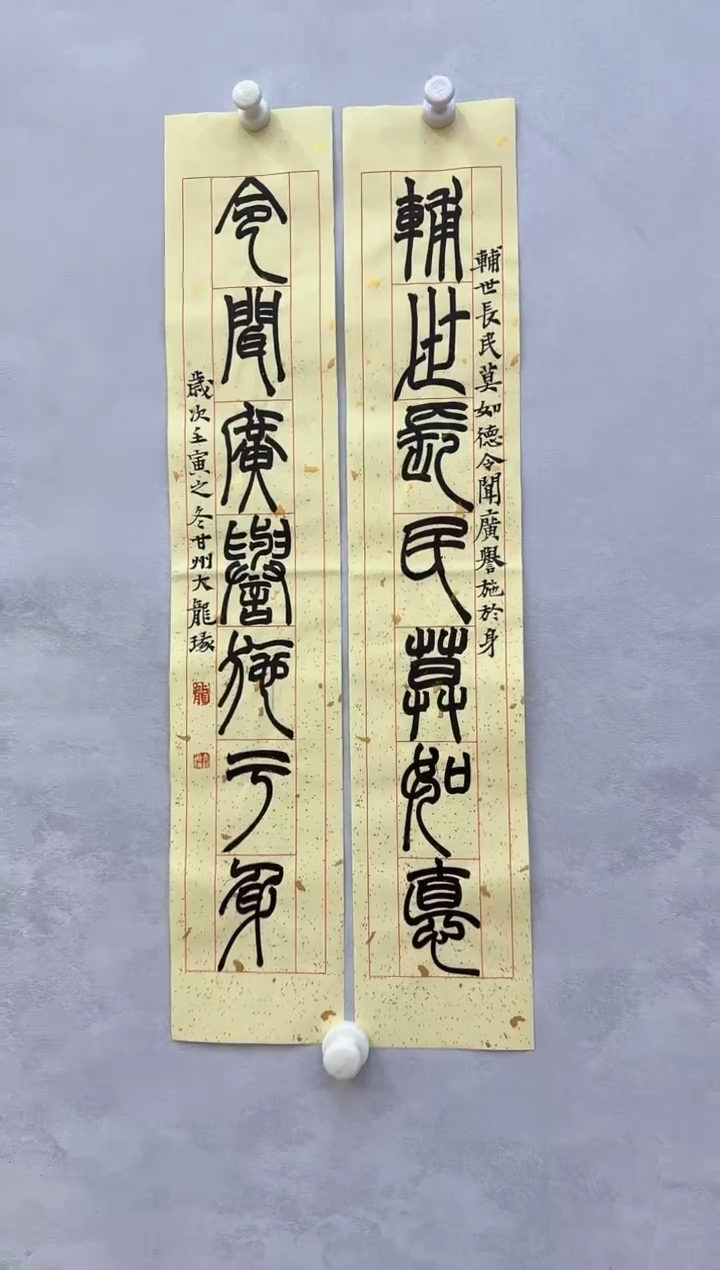 輔世長民莫如德
輔世長民莫如德令聞廣譽施於身
令聞廣譽施于身
歲次壬寅之冬甘州大龍琢
龍